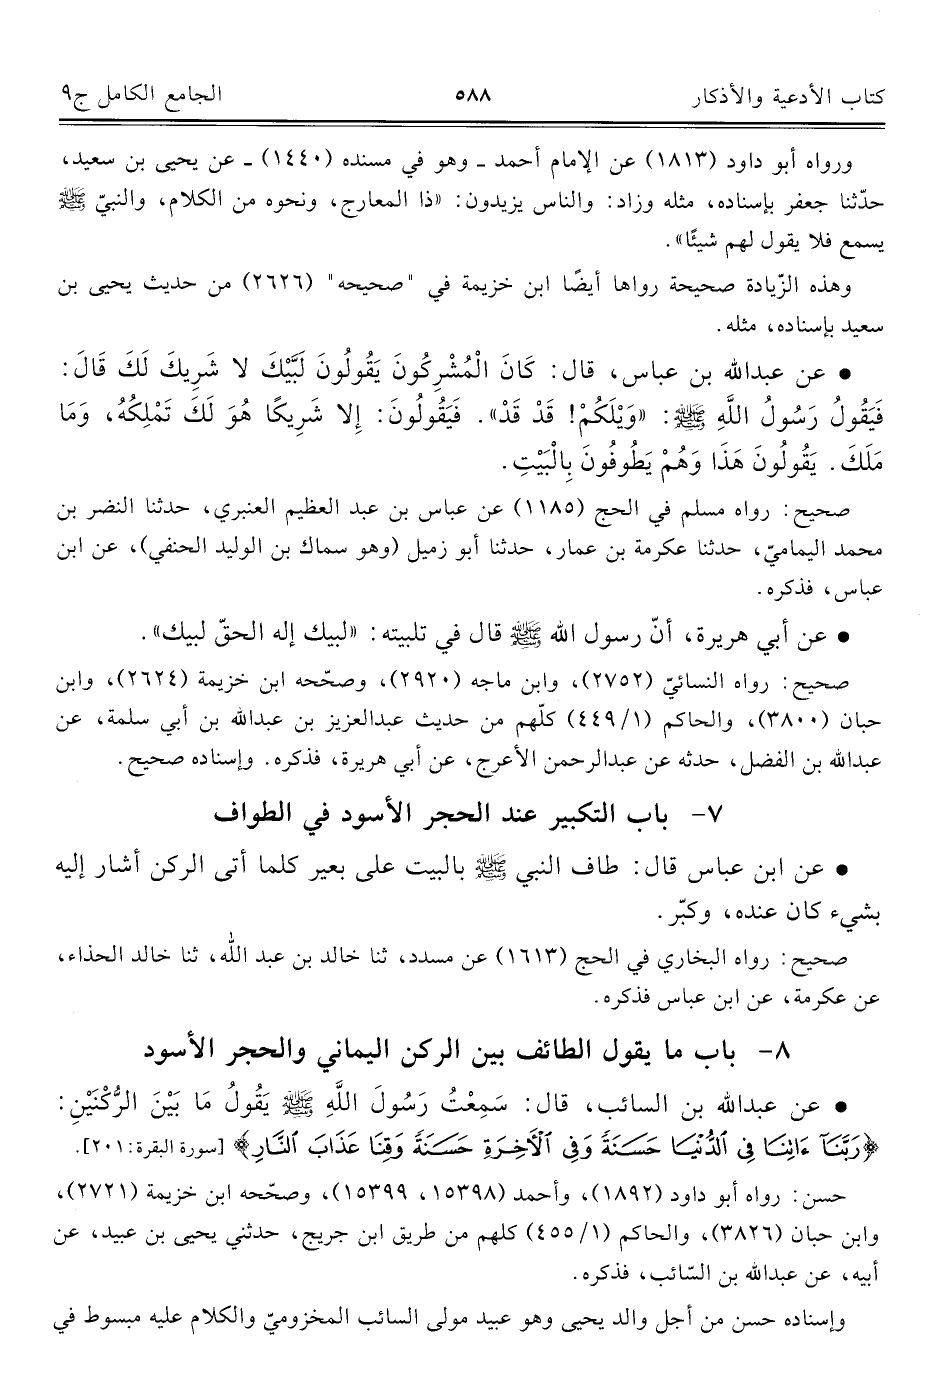 كتاب الأدعية والأذكار ٥٨٨ الجامع الكامل ج٩
ورواه أبو داود (١٨١٣) عن الإمام أحمد ـ وهو في مسنده (١٤٤٠) ـ عن يحيى بن سعيد،
حدّثنا جعفر بإسناده، مثله وزاد: والناس يزيدون: «ذا المعارج، ونحوه من الكلام، والنبيّ ﷺ
يسمع فلا يقول لهم شيئًا».
وهذه الزّيادة صحيحة رواها أيضًا ابن خزيمة في "صحيحه" (٢٦٢٦) من حديث يحيى بن
سعيد بإسناده، مثله.
• عن عبدالله بن عباس، قال: كَانَ الْمُشْرِكُونَ يَقُولُونَ لَبَّيْكَ لا شَرِيكَ لَكَ قَالَ:
فَيَقُولُ رَسُولُ اللَّهِ ﷺ: «وَيْلَكُمْ! قَدْ قَدْ». فَيَقُولُونَ: إِلا شَرِيكًا هُوَ لَكَ تَمْلِكُهُ، وَمَا
مَلَكَ. يَقُولُونَ هَذَا وَهُمْ يَطُوفُونَ بِالْبَيْتِ.
صحيح: رواه مسلم في الحج (١١٨٥) عن عباس بن عبد العظيم العنبري، حدثنا النضر بن
محمد اليماميّ، حدثنا عكرمة بن عمار، حدثنا أبو زميل (وهو سماك بن الوليد الحنفي)، عن ابن
عباس، فذكره.
• عن أبي هريرة، أنّ رسول الله ﷺ قال في تلبيته: «لبيك إله الحقّ لبيك».
صحيح: رواه النسائيّ (٢٧٥٢)، وابن ماجه (٢٩٢٠)، وصحّحه ابن خزيمة (٢٦٢٤)، وابن
حبان (٣٨٠٠)، والحاكم (٤٤٩/١) كلّهم من حديث عبدالعزيز بن عبدالله بن أبي سلمة، عن
عبدالله بن الفضل، حدثه عن عبدالرحمن الأعرج، عن أبي هريرة، فذكره. وإسناده صحيح.
٧- باب التكبير عند الحجر الأسود في الطواف
• عن ابن عباس قال: طاف النبي ﷺ بالبيت على بعير كلما أتى الركن أشار إليه
بشيء كان عنده، وكبّر.
صحيح: رواه البخاري في الحج (١٦١٣) عن مسدد، ثنا خالد بن عبد الله، ثنا خالد الحذاء،
عن عكرمة، عن ابن عباس فذكره.
٨- باب ما يقول الطائف بين الركن اليماني والحجر الأسود
• عن عبدالله بن السائب، قال: سَمِعْتُ رَسُولَ اللَّهِ ﷺ يَقُولُ مَا بَيْنَ الرُّكْنَيْنِ:
﴿رَبَّنَآ ءَاتِنَا فِي ٱلدُّنْيَا حَسَنَةً وَفِي ٱلْآخِرَةِ حَسَنَةً وَقِنَا عَذَابَ ٱلنَّارِ﴾ [سورة البقرة: ٢٠١].
حسن: رواه أبو داود (١٨٩٢)، وأحمد (١٥٣٩٨، ١٥٣٩٩)، وصحّحه ابن خزيمة (٢٧٢١)،
وابن حبان (٣٨٢٦)، والحاكم (٤٥٥/١) كلهم من طريق ابن جريج، حدثني يحيى بن عبيد، عن
أبيه، عن عبدالله بن السّائب، فذكره.
وإسناده حسن من أجل والد يحيى وهو عبيد مولى السائب المخزوميّ والكلام عليه مبسوط في